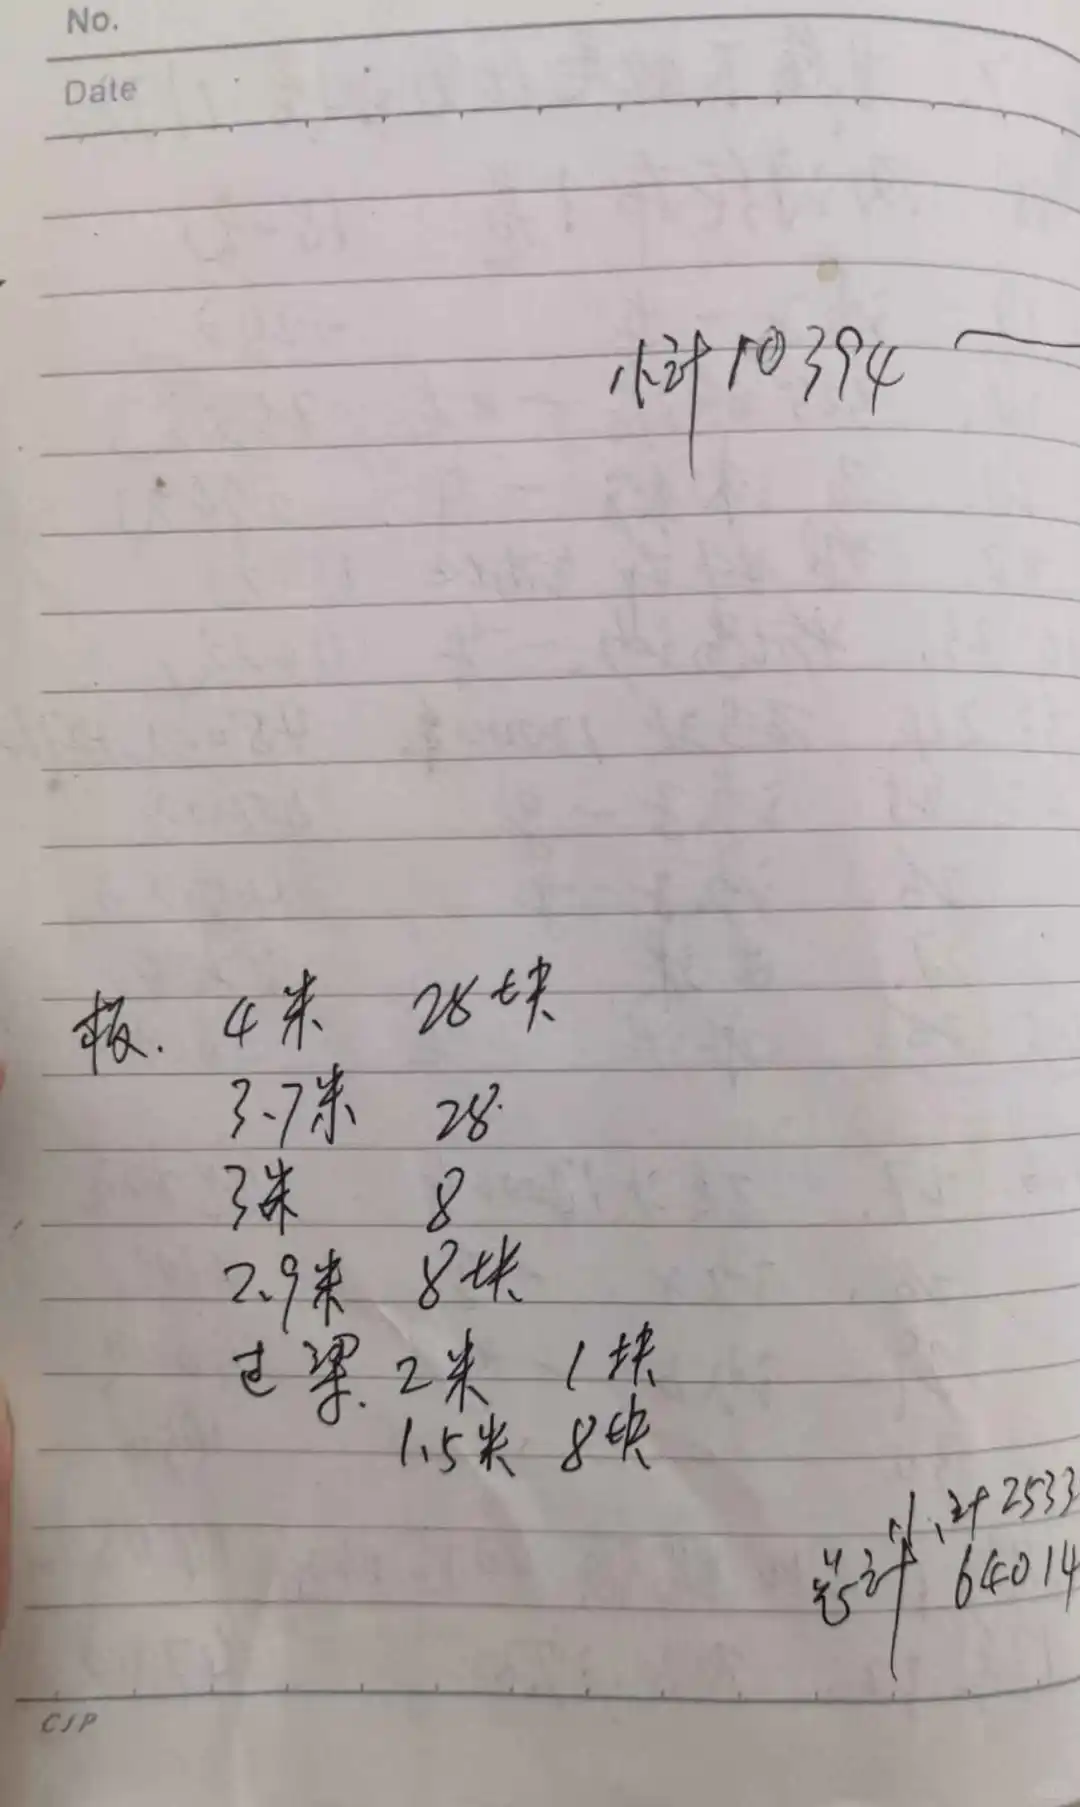 No.
Date
小计10394
板. 4米 28块
3.7米 28
3米 8
2.9米 8块
过梁. 2米 1块
1.5米 8块
小计2533
总计 64014
CJP